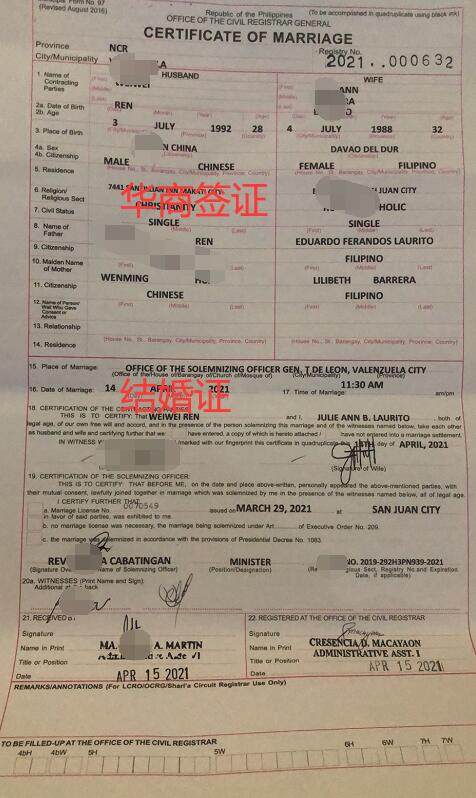 Form No. 97
(Revised August 2016)
Republic of the Philippines
OFFICE OF THE CIVIL REGISTRAR GENERAL
(To be accomplished in quadruplicate using black ink)
CERTIFICATE OF MARRIAGE
Province NCR
City/Municipality
Registry No.
2021..000632
1. Name of Contracting Parties
HUSBAND
WIFE
(First)
(First) ANN
(Middle)
(Middle)
(Last) REN
(Last)
2a. Date of Birth
2b. Age
3 JULY 1992 28
4 JULY 1988 32
3. Place of Birth
N CHINA
DAVAO DEL DUR
4a. Sex
4b. Citizenship
MALE CHINESE
FEMALE FILIPINO
5. Residence
(House No., St., Barangay, City/Municipality, Province, Country)
JUAN CITY
华商签证
6. Religion/ Religious Sect
CHRISTIANITY
HOLIC
7. Civil Status
SINGLE
SINGLE
8. Name of Father
REN
EDUARDO FERANDOS LAURITO
(First) (Middle) (Last)
9. Citizenship
FILIPINO
10. Maiden Name of Mother
WENMING
LILIBETH BARRERA
(First) (Middle) (Last)
11. Citizenship
CHINESE
FILIPINO
12. Name of Person/ Who Gave Consent or Advice
(First) (Middle) (Last)
13. Relationship
14. Residence
(House No., St., Barangay, City/Municipality, Province, Country)
15. Place of Marriage:
OFFICE OF THE SOLEMNIZING OFFICER GEN. T DE LEON, VALENZUELA CITY
(Office of the/House of/Barangay of/Church of/Mosque of) (City/Municipality) (Province)
16. Date of Marriage: 14 APRIL 2021
17. Time of Marriage: 11:30 AM am/pm
结婚证
18. CERTIFICATION OF THE CONTRACTING PARTIES:
THIS IS TO CERTIFY: That WEIWEI REN and I, JULIE ANN B. LAURITO, both of
legal age, of our own free will and accord, and in the presence of the person solemnizing this marriage and of the witnesses named below, take each other
as husband and wife and certifying further that we: have entered, a copy of which is hereto attached / have not entered into a marriage settlement.
IN WITNESS marked with our fingerprint this certificate in quadruplicate this 14TH day of APRIL, 2021
(Signature of Wife)
19. CERTIFICATION OF THE SOLEMNIZING OFFICER:
THIS IS TO CERTIFY: THAT BEFORE ME, on the date and place above-written, personally appeared the above-mentioned parties, with
their mutual consent, lawfully joined together in marriage which was solemnized by me in the presence of the witnesses named below, all of legal age.
I CERTIFY FURTHER THAT:
a. Marriage License No. 0070549 issued on MARCH 29, 2021 at SAN JUAN CITY
in favor of said parties, was exhibited to me.
b. no marriage license was necessary, the marriage being solemnized under Art of Executive Order No. 209.
c. the marriage was solemnized in accordance with the provisions of Presidential Decree No. 1083.
REV CABATINGAN
MINISTER
NO. 2019-292H3PN939-2021
(Signature Over Name of Solemnizing Officer)
(Position/Designation)
Sect, Registry No. and Expiration Date, if applicable)
20a. WITNESSES (Print Name and Sign):
Additional at back
21. RECEIVED BY
22. REGISTERED AT THE OFFICE OF THE CIVIL REGISTRAR
Signature
Signature
Name in Print MA. A. MARTIN
Name in Print CRESENCIA D. MACAYAON
Title or Position
Title or Position ADMINISTRATIVE ASST. I
Date APR 15 2021
Date APR 15 2021
REMARKS/ANNOTATIONS (For LCRO/OCRG/Shari'a Circuit Registrar Use Only)
TO BE FILLED-UP AT THE OFFICE OF THE CIVIL REGISTRAR
4bH 4bW 5H 5W 6H 6W 7H 7W